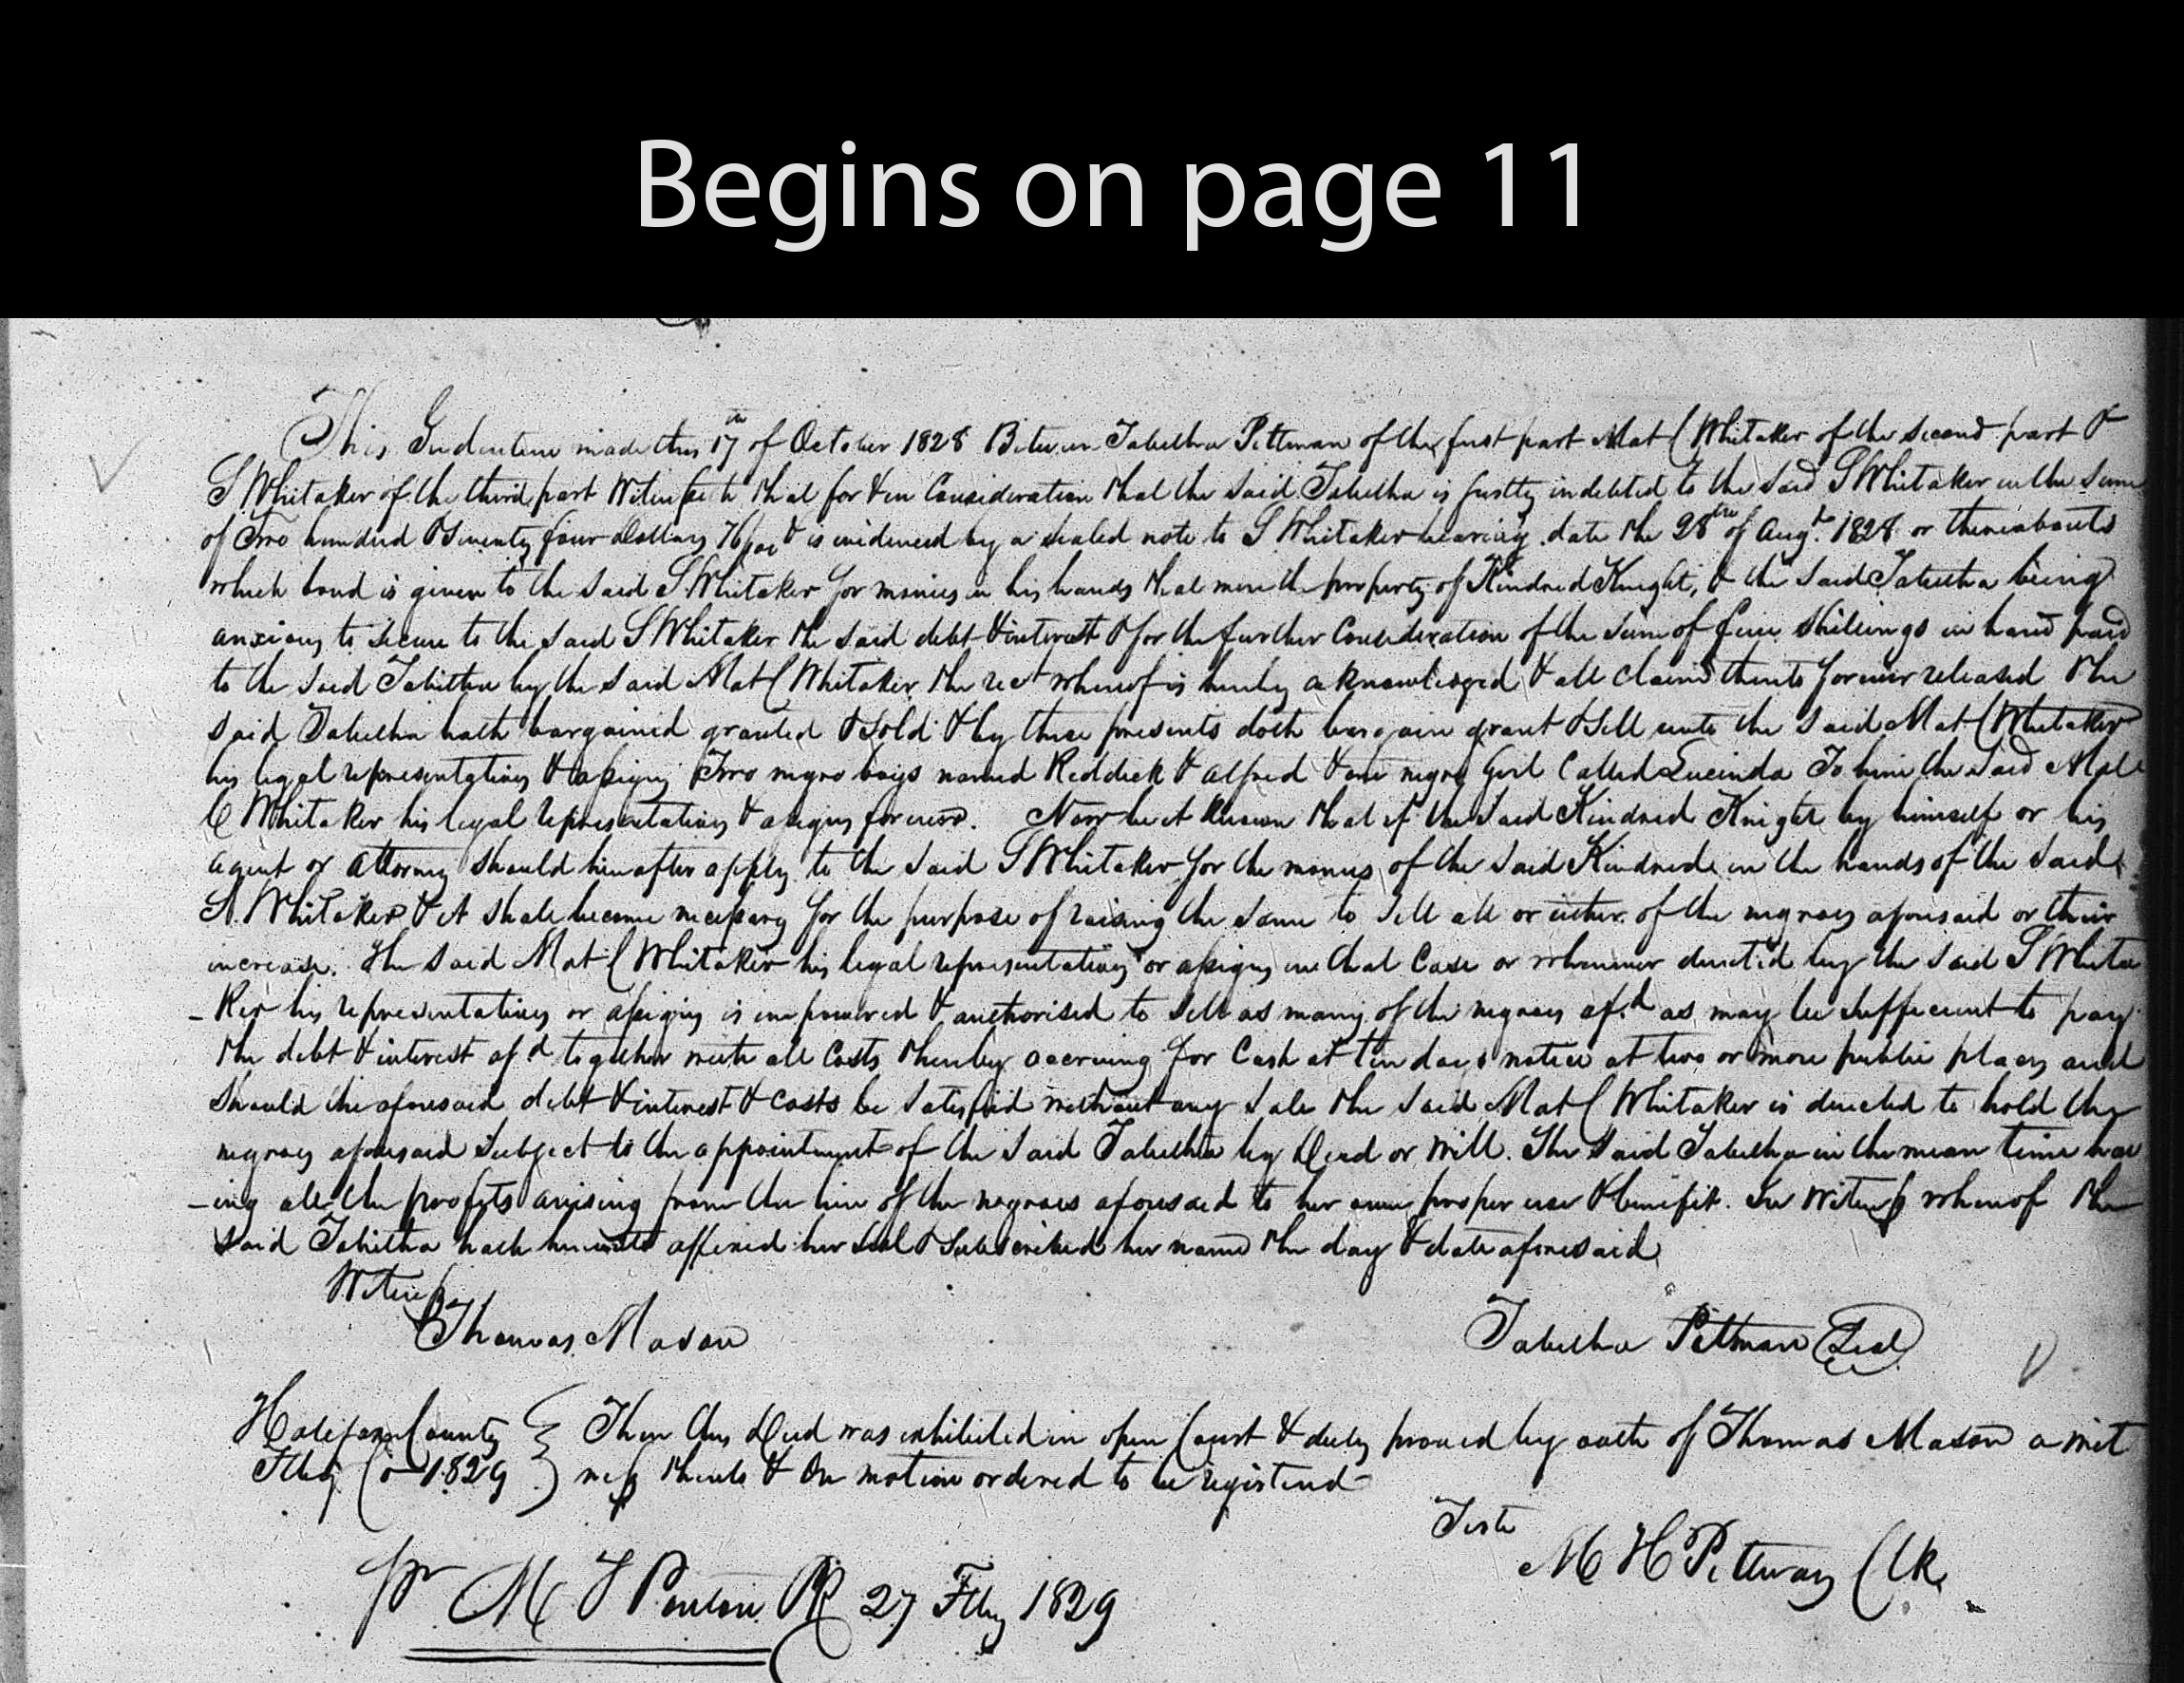 Begins on page 11
This Indenture made this 17th of October 1828 Between Tabitha Pittman of the first part Mat C Whitaker of the second part &
S Whitaker of the third part Witnesseth that for & in Consideration that the said Tabitha is justly indebted to the said S Whitaker in the sum
of Two hundred & Seventy four Dollars 76/100 & is evidenced by a sealed note to S Whitaker bearing date the 28th of Augt. 1828 or thereabouts
which bond is given to the said S Whitaker for monies in his hands that were the property of Kindred Knight, & the said Tabitha being
anxious to secure to the said S Whitaker the said debt & interest & for the further Consideration of the sum of five Shillings in hand paid
to the said Tabitha by the said Mat C Whitaker the rect whereof is hereby acknowledged & all claims thereto forever released the
said Tabitha hath bargained granted & sold & by these presents doth bargain grant & sell unto the said Mat C Whitaker
his legal representatives & assigns Two negro boys named Reddick & Alfred & one negro Girl Called Lucinda To him the said Mat
C Whitaker his legal representatives & assigns forever. Now be it known that if the said Kindred Knight by himself or his
agent or attorney should hereafter apply to the said S Whitaker for the monies of the said Kindred in the hands of the said
S. Whitaker & it shall become necessary for the purpose of raising the same to sell all or either of the negroes aforesaid or their
increase. The said Mat C Whitaker his legal representatives or assigns in that Case or whenever directed by the said S Whita
-ker his representatives or assigns is empowered & authorised to sell as many of the negroes afsd as may be sufficient to pay
the debt & interest afsd together with all Costs thereby accruing for Cash at ten days notice at two or more public places and
should the aforesaid debt & interest & costs be satisfied without any sale the said Mat C Whitaker is directed to hold the
negroes aforesaid subject to the appointment of the said Tabitha by Deed or Will. The said Tabitha in the mean time hav
-ing all the profits arising from the hire of the negroes aforesaid to her own proper use & benefit. In Witness whereof the
said Tabitha hath hereunto affixed her seal & subscribed her name the day & date aforesaid
Witness
Thomas Mason
Tabitha Pittman Seal
Halifax County } Then this Deed was exhibited in open Court & duly proved by oath of Thomas Mason a wit
Feby Co 1829 } ness thereto & On motion ordered to be registered
Teste
M H Pettway Clk.
pr M T Ponton PR 27 Feby 1829